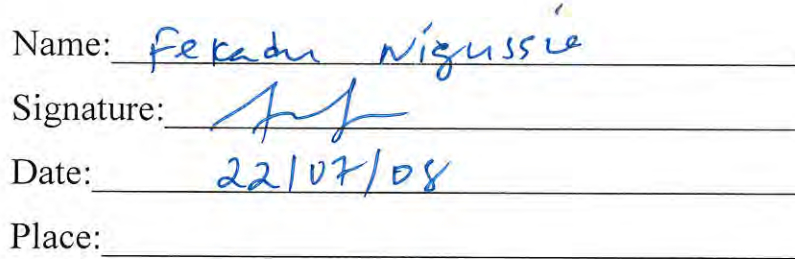 Name: Fekadu Nigussie
Signature:
Date: 22/07/08
Place: